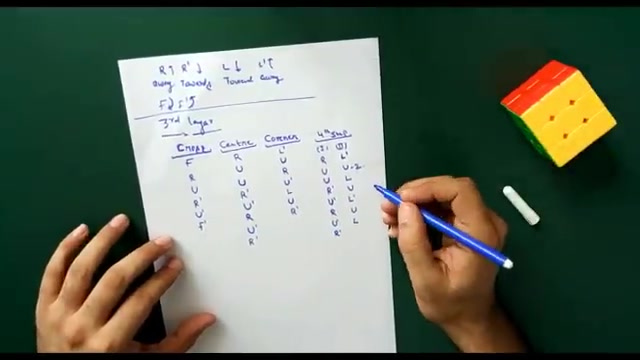 R↑ R'↓ L↓ L'↑
away Towards Toward away
F F'
3rd layer
Cross
F
R
U
R'
U'
F'
Centric
R
U
U
U'
R
U'
R'
Corners
L'
U
R
U'
L
U
R'
4th step
(I) (II)
R L'
U U-2
U L
R' U
U' L'
R U
U' L
R'